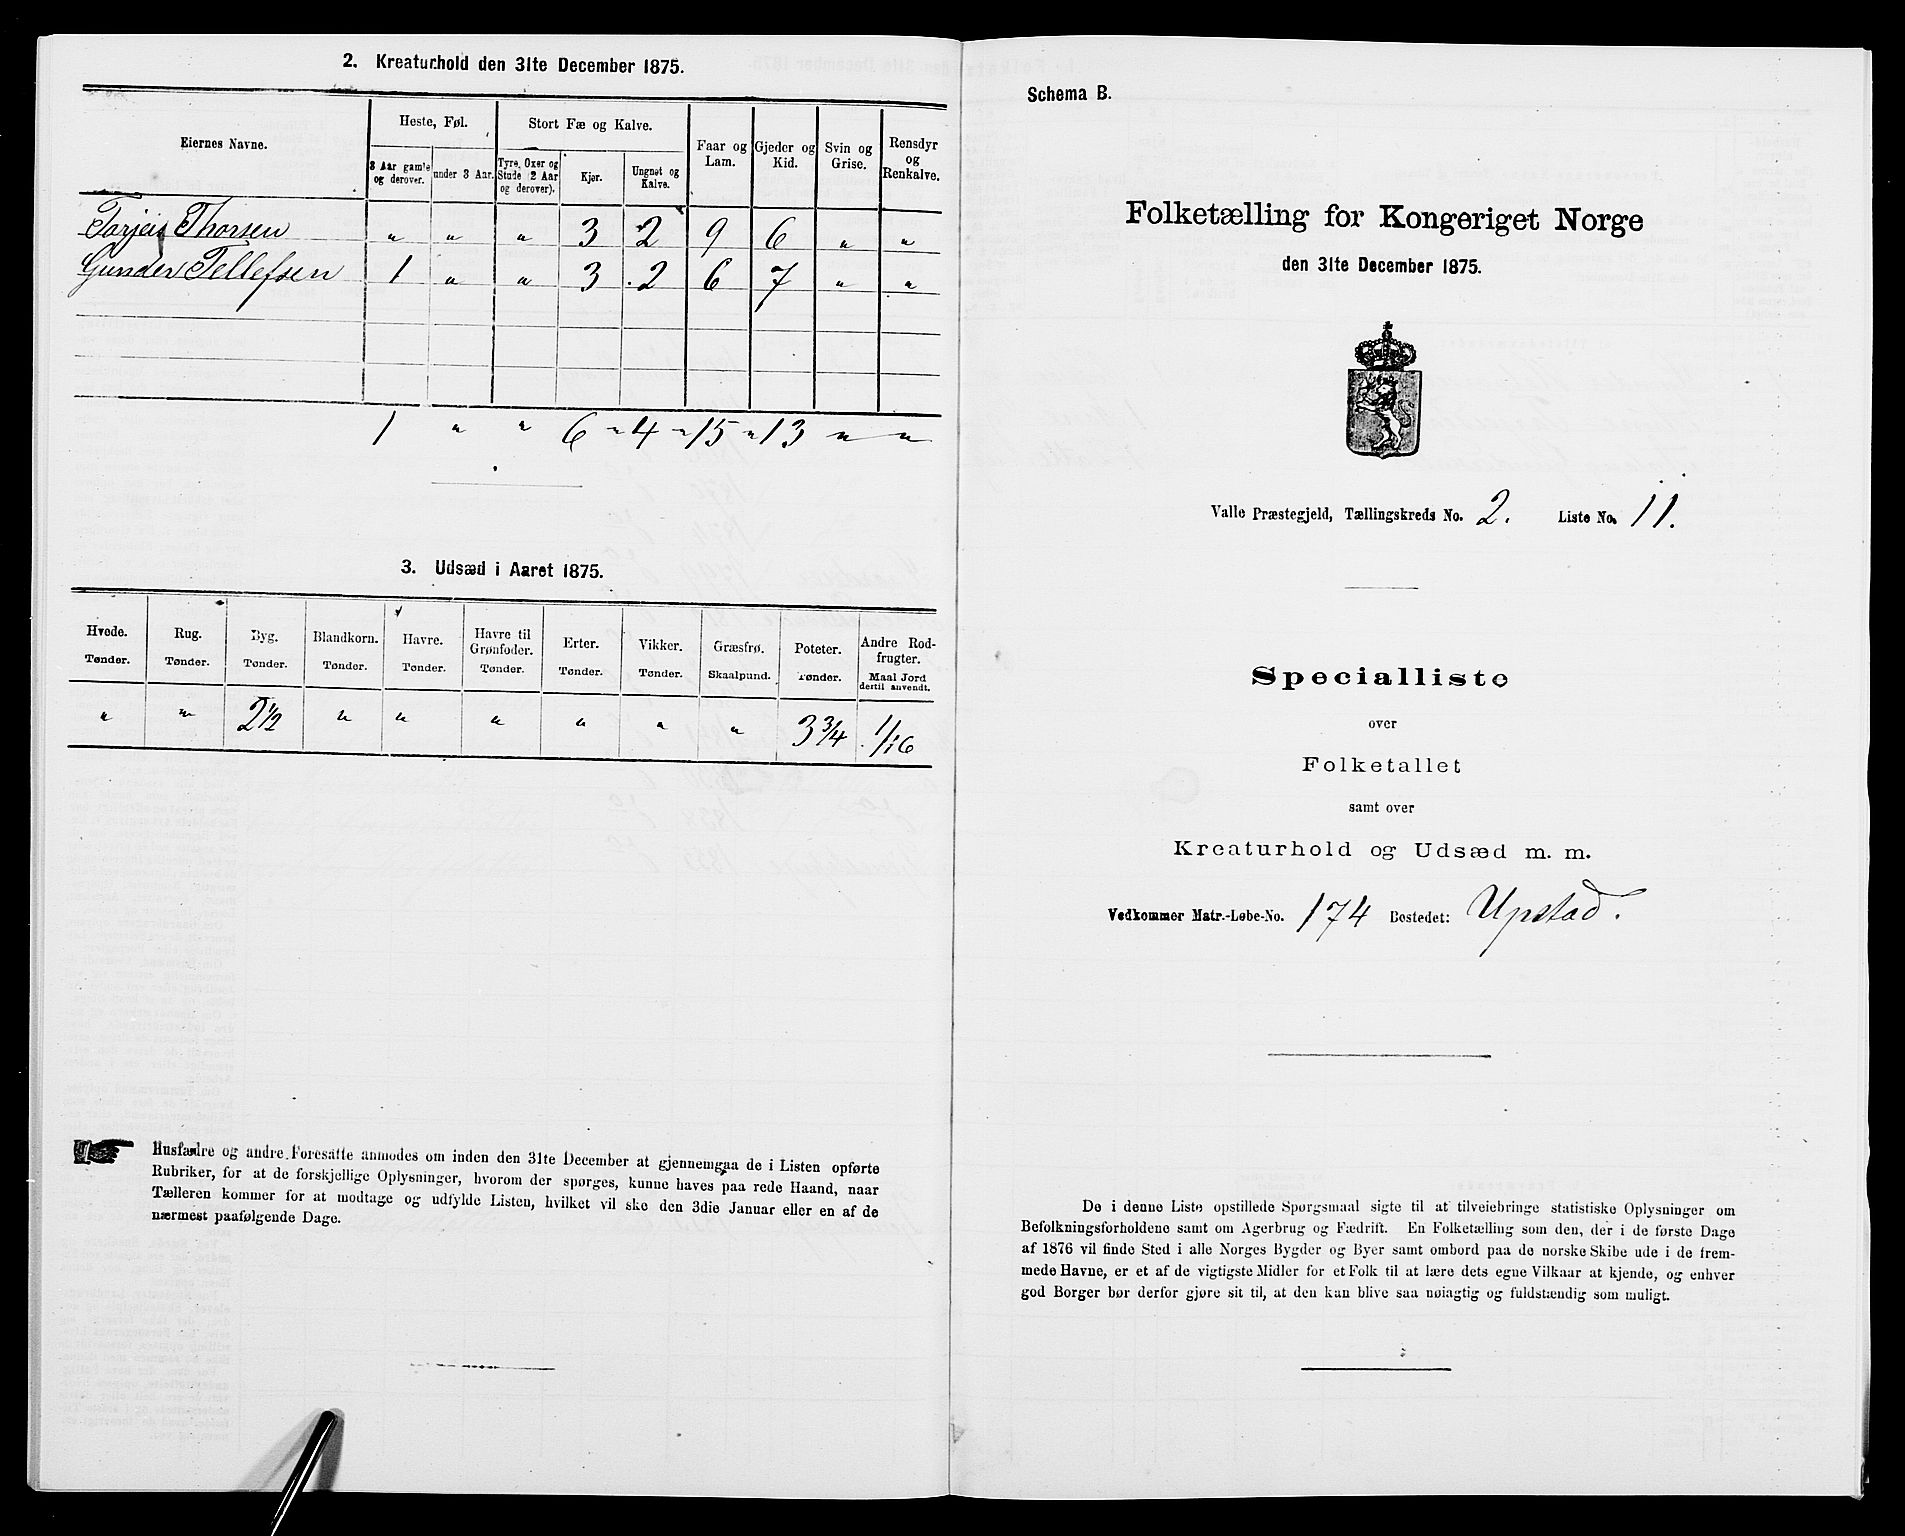 2. Kreaturhold den 31te December 1875.
Eiernes Navne.
Heste, Føl.
Stort Fæ og Kalve.
Faar og Lam.
Gjeder og Kid.
Svin og Grise.
Rensdyr og Renkalve.
3 Aar gamle og derover.
under 3 Aar.
Tyre, Oxer og Stude (2 Aar og derover).
Kjør.
Ungnøt og Kalve.
Torjeis Thorsen " " " 3 2 9 6 " "
Gunder Tellefsen 1 " " 3 2 6 7 " "
1 " " 6 " 4 " 15 " 13 " "
3. Udsæd i Aaret 1875.
Hvede. Tønder.
Rug. Tønder.
Byg. Tønder.
Blandkorn. Tønder.
Havre. Tønder.
Havre til Grønfoder. Tønder.
Erter. Tønder.
Vikker. Tønder.
Græsfrø. Skaalpund.
Poteter. Tønder.
Andre Rodfrugter. Maal Jord dertil anvendt.
" " 2 1/2 " " " " " " 3 3/4 1/16
Husfædre og andre Foresatte anmodes om inden den 31te December at gjennemgaa de i Listen opførte
Rubriker, for at de forskjellige Oplysninger, hvorom der spørges, kunne haves paa rede Haand, naar
Tælleren kommer for at modtage og udfylde Listen, hvilket vil ske den 3die Januar eller en af de
nærmest paafølgende Dage.
Schema B.
Folketælling for Kongeriget Norge
den 31te December 1875.
Valle Præstegjeld, Tællingskreds No. 2. Liste No. 11.
Specialliste
over
Folketallet
samt over
Kreaturhold og Udsæd m. m.
Vedkommer Matr.-Løbe-No. 174 Bostedet: Upstad.
De i denne Liste opstillede Spørgsmaal sigte til at tilveiebringe statistiske Oplysninger om
Befolkningsforholdene samt om Agerbrug og Fædrift. En Folketælling som den, der i de første Dage
af 1876 vil finde Sted i alle Norges Bygder og Byer samt ombord paa de norske Skibe ude i de frem-
mede Havne, er et af de vigtigste Midler for et Folk til at lære dets egne Vilkaar at kjende, og enhver
god Borger bør derfor gjøre sit til, at den kan blive saa nøiagtig og fuldstændig som muligt.